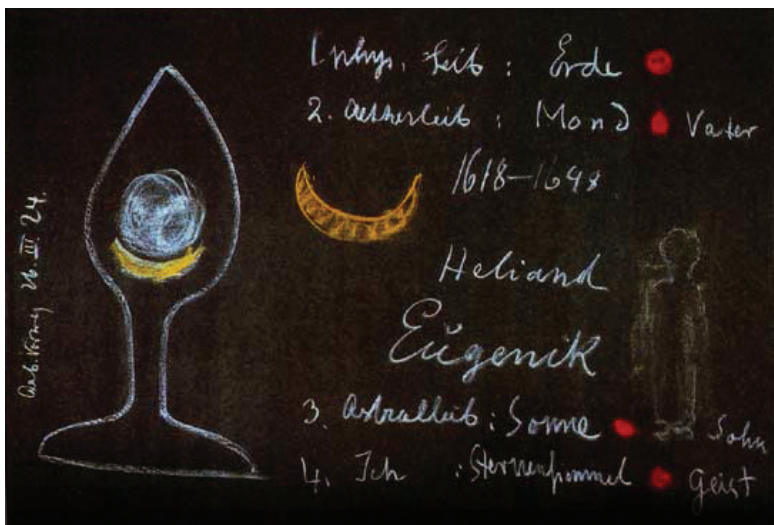 1. phys. Leib : Erde
2. Aetherleib : Mond Vater
1618–1648
Heliand
Eugenik
3. Astralleib : Sonne Sohn
4. Ich : Sternenhimmel Geist
III 24.